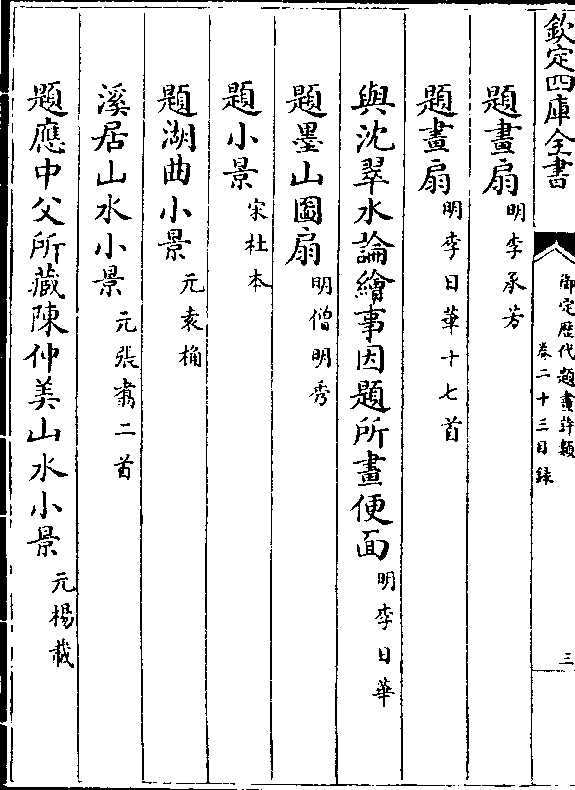 欽定四庫全書
御定歷代題畫詩類
卷二十三目録
三
題畫扇 明李承芳
題畫扇 明李日華十七首
與沈翠水論繪事因題所畫便面 明李日華
題墨山圖扇 明僧明秀
題小景 宋杜本
題湖曲小景 元袁桷
溪居山水小景 元張翥二首
題應中父所藏陳仲美山水小景 元楊載